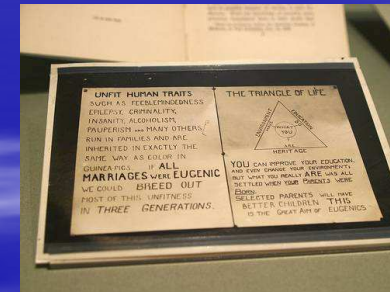 UNFIT HUMAN TRAITS
SUCH AS FEEBLEMINDEDNESS
EPILEPSY, CRIMINALITY,
INSANITY, ALCOHOLISM,
PAUPERISM AND MANY OTHERS
RUN IN FAMILIES AND ARE
INHERITED IN EXACTLY THE
SAME WAY AS COLOR IN
GUINEA-PIGS. IF ALL
MARRIAGES WERE EUGENIC
WE COULD BREED OUT
MOST OF THIS UNFITNESS
IN THREE GENERATIONS.
THE TRIANGLE OF LIFE
ENVIRONMENT
EDUCATION
YOU
ARE
HERITAGE
YOU CAN IMPROVE YOUR EDUCATION,
AND EVEN CHANGE YOUR ENVIRONMENT;
BUT WHAT YOU REALLY ARE WAS ALL
SETTLED WHEN YOUR PARENTS WERE
BORN.
SELECTED PARENTS WILL HAVE
BETTER CHILDREN THIS
IS THE GREAT AIM OF EUGENICS